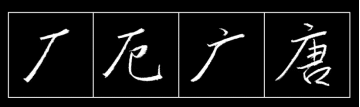 厂厄广唐